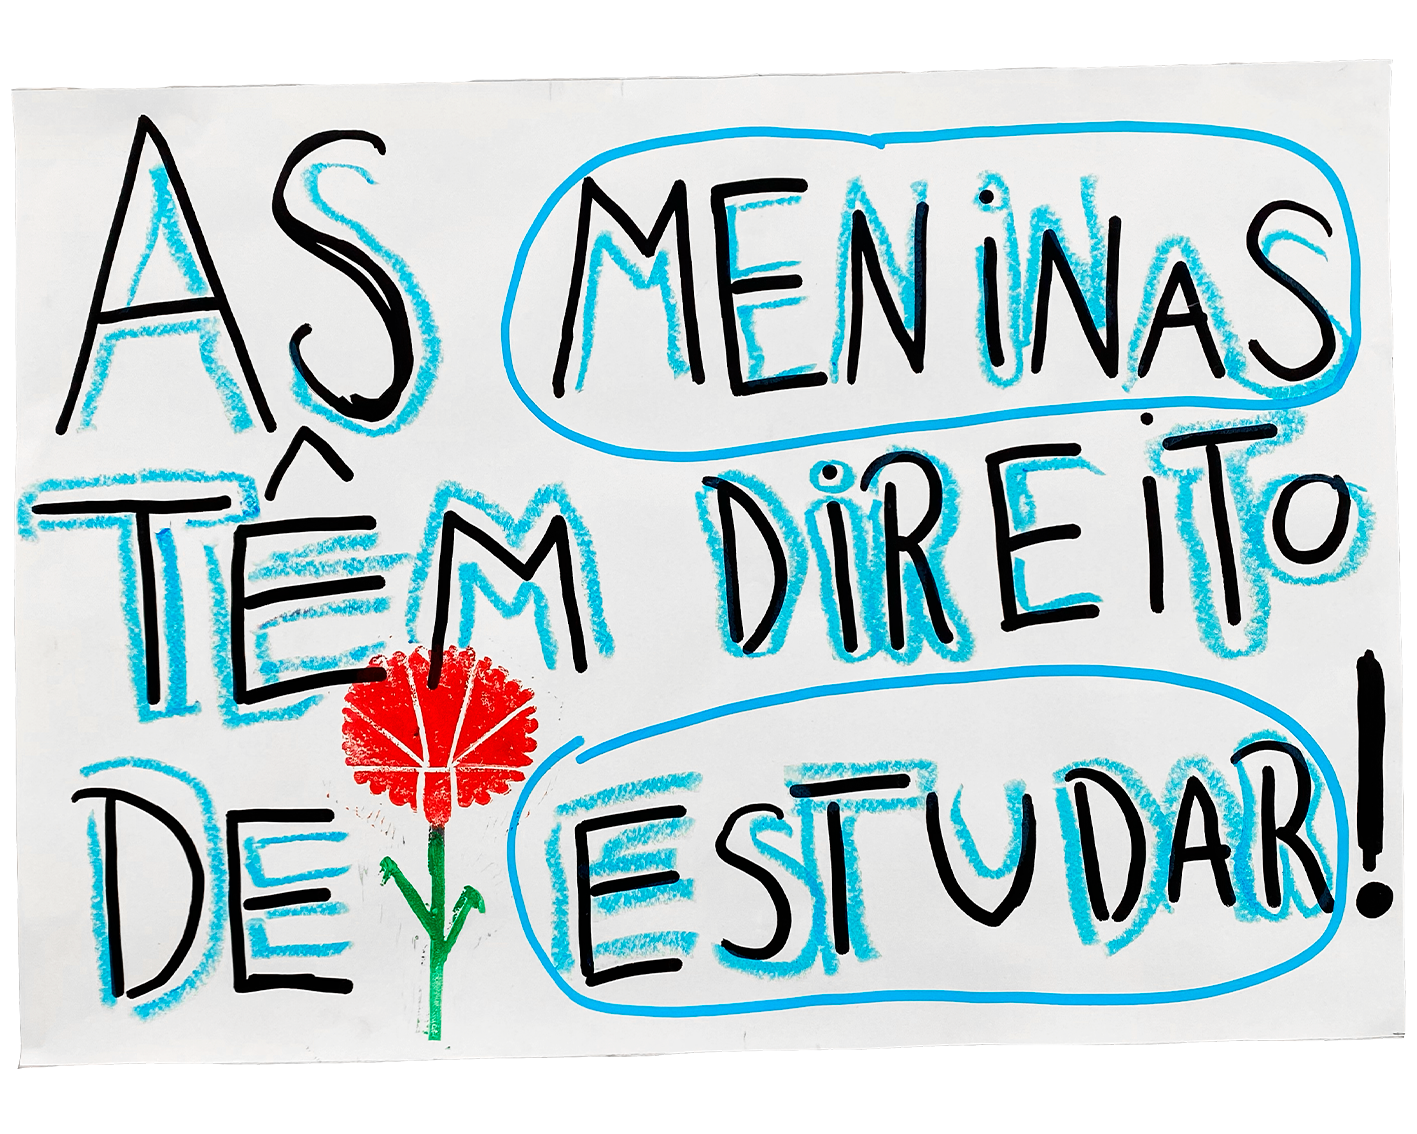 AS MENiNAS
TÊM DiREiTO
DE ESTUDAR!